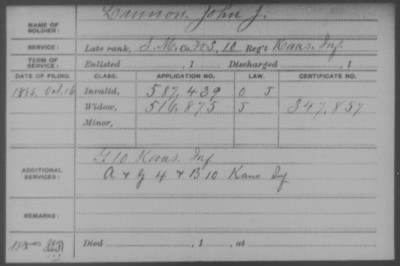 NAME OF SOLDIER: Cannon, John J.
SERVICE: Late rank, S. M. Co. F&S, 10 Reg't Kans. Inf.
TERM OF SERVICE: Enlisted , 1 Discharged , 1
DATE OF FILING. CLASS. APPLICATION NO. LAW. CERTIFICATE NO.
1886. Oct. 16 Invalid, 587,439 O J
Widow, 516,875 J 347,857
Minor,
ADDITIONAL SERVICES: G 10 Kans. Inf
A & G 4 & B 10 Kans Inf
REMARKS:
Died , 1 , at